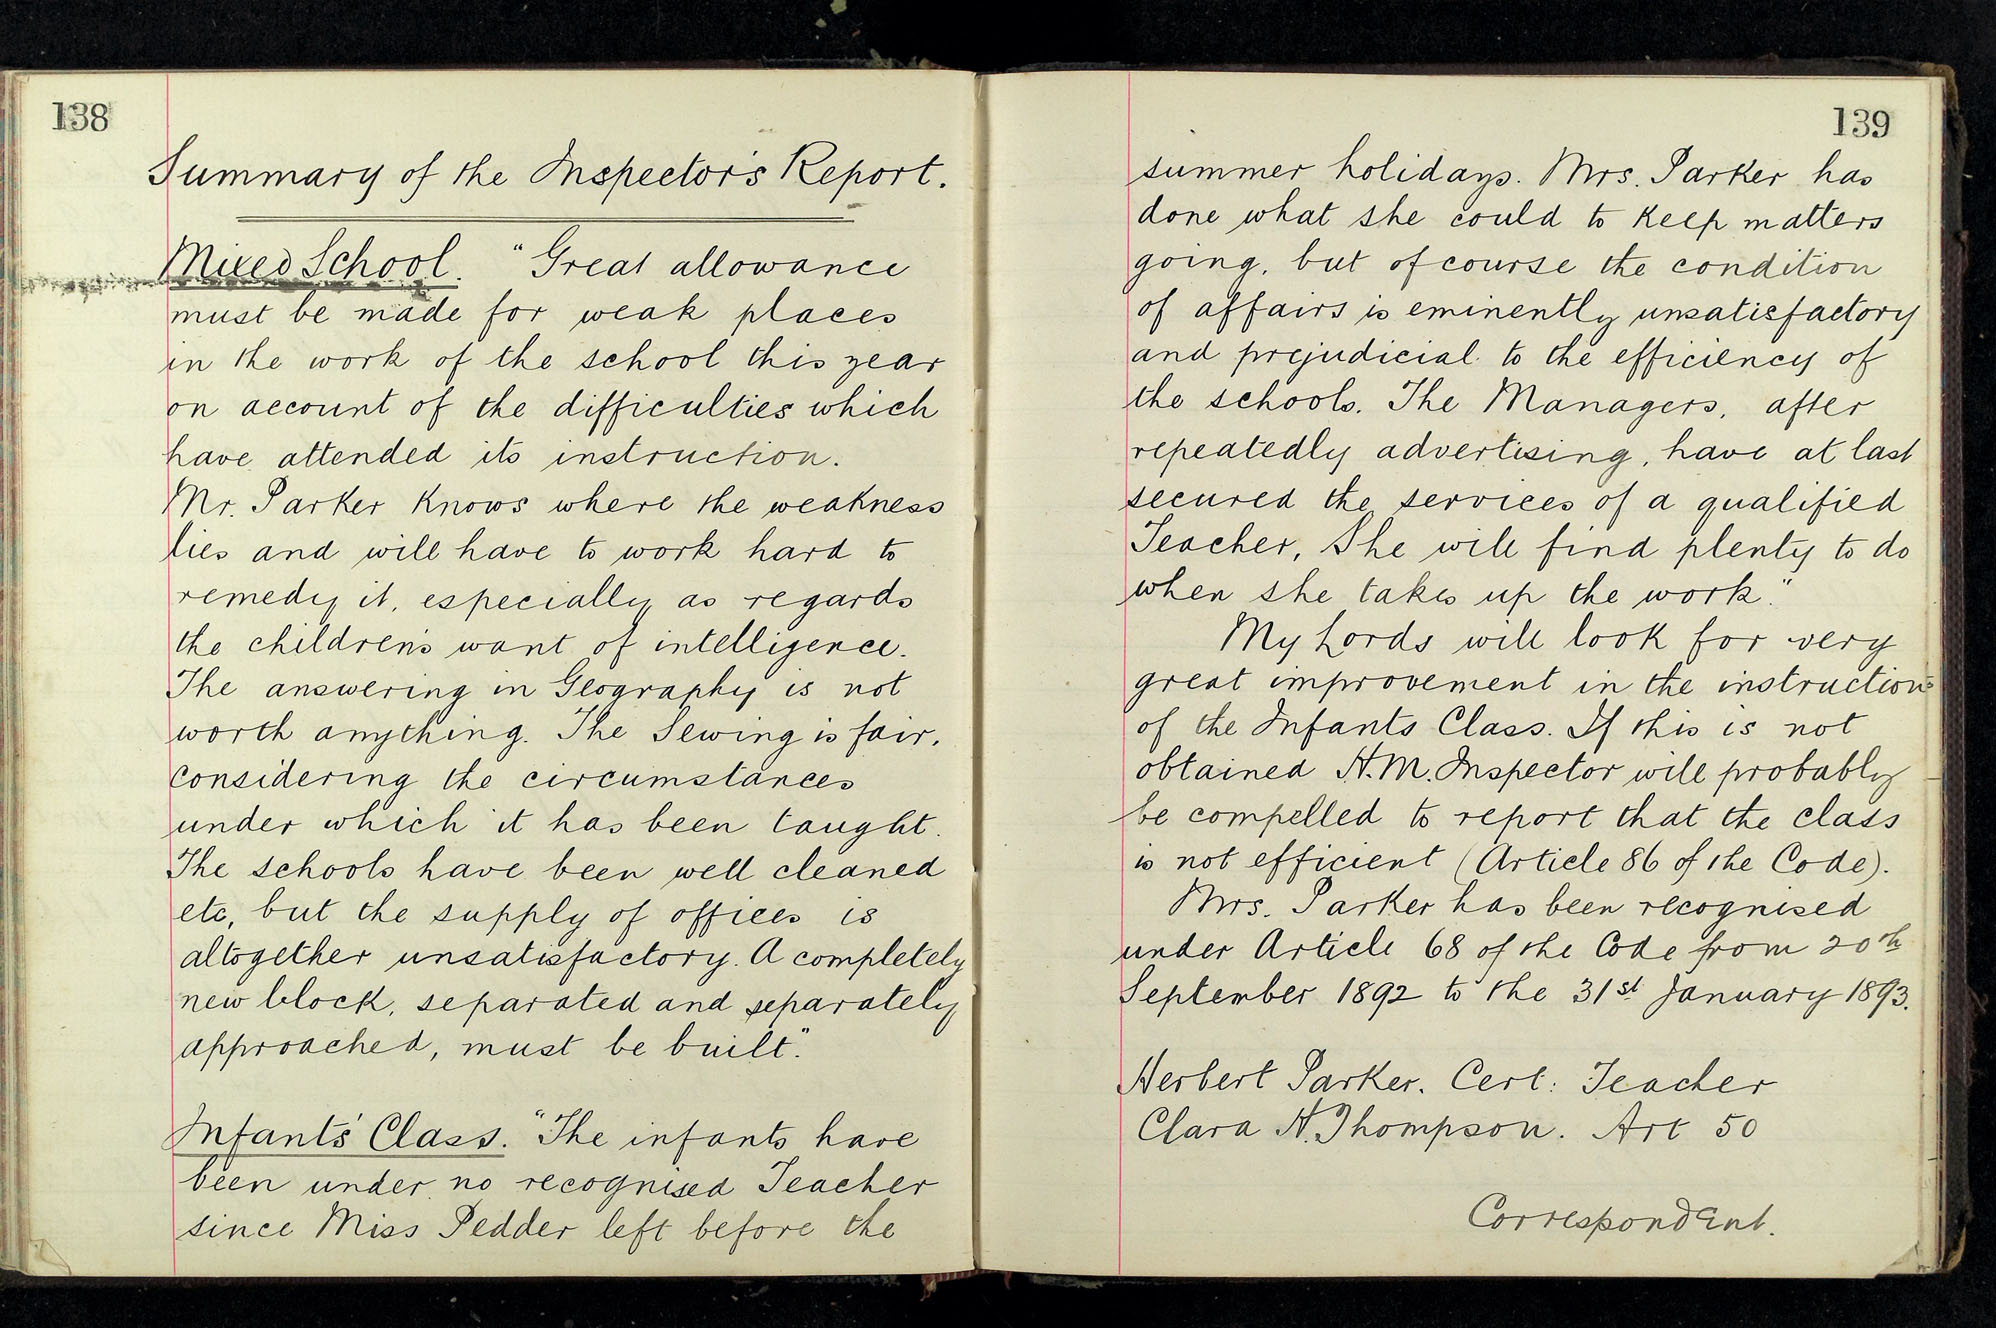 138
Summary of the Inspector's Report.
Mixed School. "Great allowance
must be made for weak places
in the work of the school this year
on account of the difficulties which
have attended its instruction.
Mr. Parker knows where the weakness
lies and will have to work hard to
remedy it, especially as regards
the children's want of intelligence.
The answering in Geography is not
worth anything. The Sewing is fair,
considering the circumstances
under which it has been taught.
The schools have been well cleaned
etc, but the supply of offices is
altogether unsatisfactory. A completely
new block, separated and separately
approached, must be built."
Infants' Class. "The infants have
been under no recognised Teacher
since Miss Pedder left before the
139
summer holidays. Mrs. Parker has
done what she could to keep matters
going, but of course the condition
of affairs is eminently unsatisfactory
and prejudicial to the efficiency of
the schools. The Managers, after
repeatedly advertising, have at last
secured the services of a qualified
Teacher, She will find plenty to do
when she takes up the work."
My Lords will look for very
great improvement in the instruction
of the Infants Class. If this is not
obtained H.M. Inspector will probably
be compelled to report that the class
is not efficient (Article 86 of the Code).
Mrs. Parker has been recognised
under Article 68 of the Code from 20th
September 1892 to the 31st January 1893.
Herbert Parker. Cert: Teacher
Clara H. Thompson. Art 50
Correspondent.